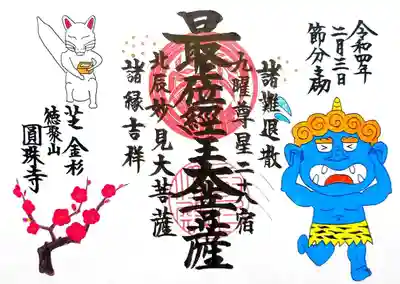 令和四年
二月三日
節分主助
諸難退散
九曜尊星二十八宿
最位經王大菩薩
北辰妙見大菩薩
諸縁吉祥
芝金杉
徳聚山
圓珠寺